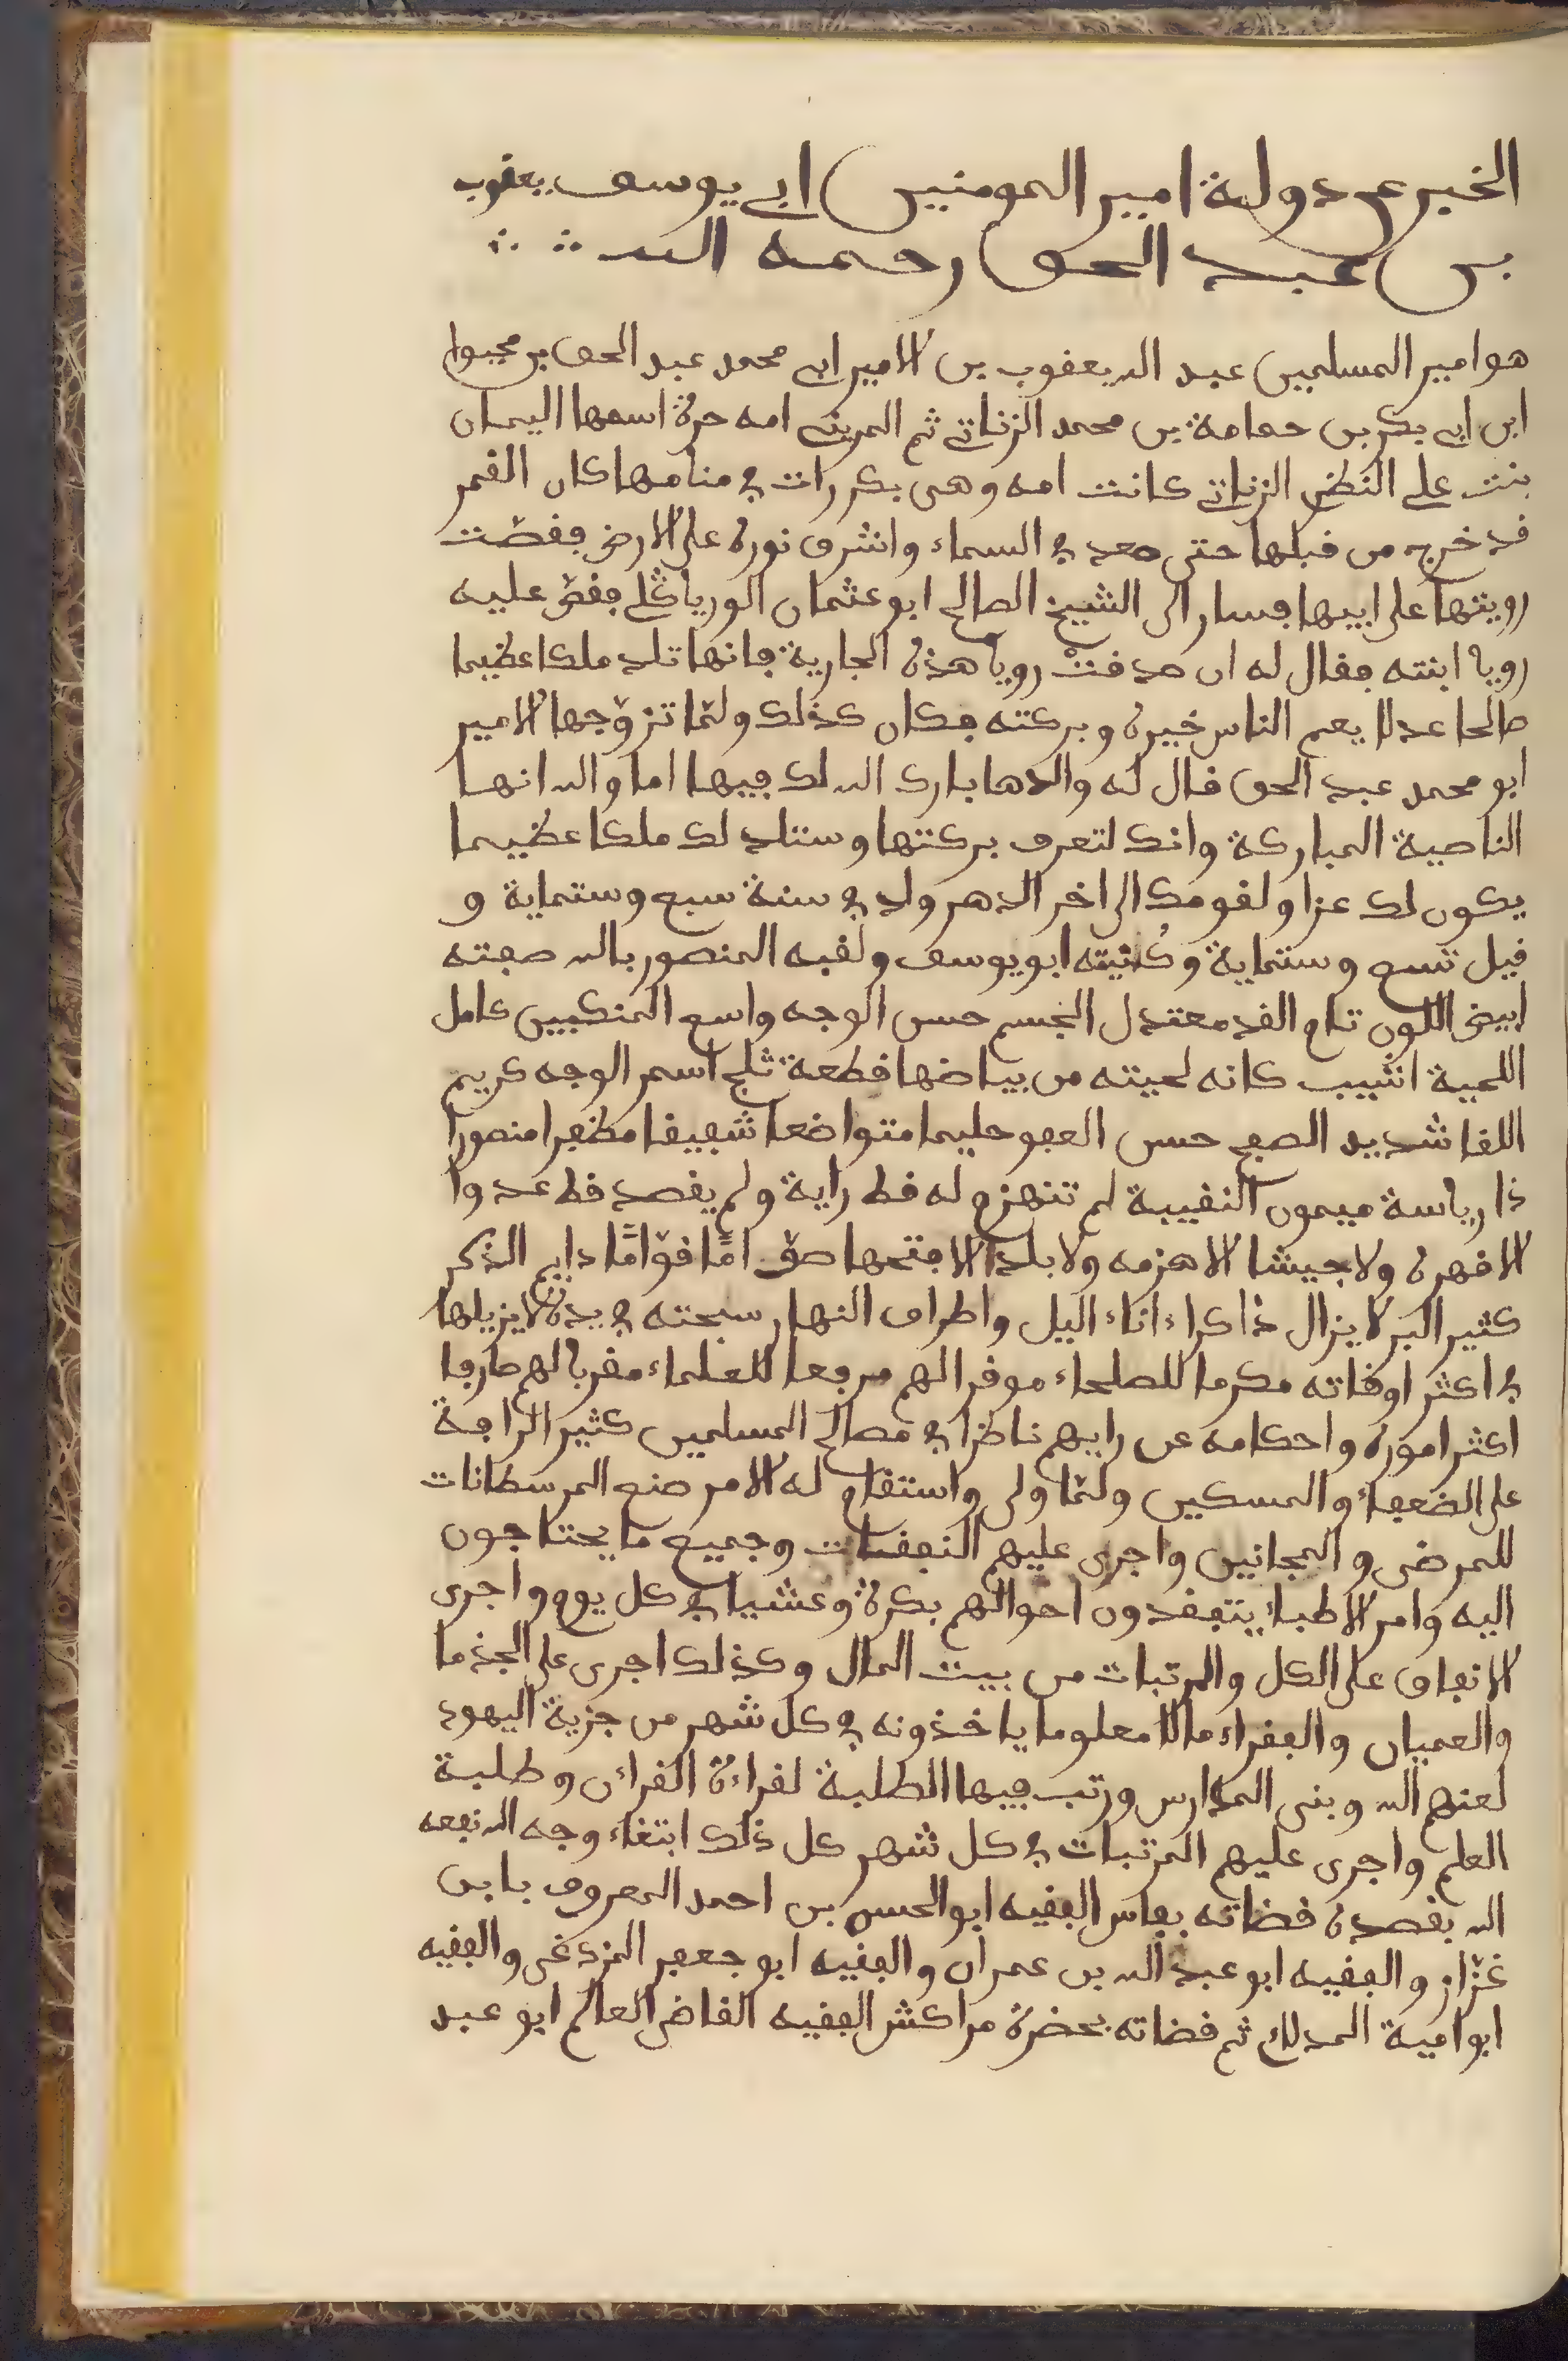 الخبر عن دولة امير المومنين ابي يوسف يعقوب
بن عبد الحق رحمه الله
هو امير المسلمين عبد الله يعقوب بن الامير ابي محمد عبد الحق بن محيوا
ابن ابي بكر بن حمامة بن محمد الزناتي ثم المريني امه حرة اسمها اليمان
بنت علي النظي الزناتي كانت امه وهي بكر رات في منامها كان القمر
قد خرج من قبلها حتى صعد في السماء واشرق نوره على الارض فقصّت
رويتها على ابيها فسار الى الشيخ الصالح ابو عثمان الورياگلي فقصّ عليه
رويا ابنته فقال له ان صدقتْ رويا هذه الجارية فانها تلد ملكا عظيما
صالحا عدلا يعم الناس خيره وبركته فكان كذلك ولمّا تزوّجها الامير
ابو محمد عبد الحق قال له والدها بارك الله لك فيها اما والله انها
الناصية المباركة وانك لتعرف بركتها وستلد لك ملكا عظيما
يكون لك عزا ولقومك الى اخر الدهر ولد في سنة سبع وستماية و
قيل تسع وستماية وكُنيته ابو يوسف ولقبه المنصور بالله صفته
ابيض اللون تام القد معتدل الجسم حسن الوجه واسع المنكبين كامل
اللحية اشيب كانه لحيته من بياضها قطعة ثلج اسمر الوجه كريم
اللقا شديد الصفح حسن العفو حليما متواضعا شفيقا مظفرا منصورا
ذا رياسة ميمون النقيبة لم تنهزم له قط راية ولم يقصد قط عدوا
الا قهره ولا جيشا الا هزمه ولا بلدا الا فتحها صوّاما قوّامًا دايم الذكر
كثير البر لا يزال ذاكرا ءاناء اليل واطراف النهار سبحته في يده لا يزيلها
في اكثر اوقاته مكرما للصلحاء موقرا لهم مرفعا للعلماء مقربا لهم صارفا
اكثر اموره واحكامه عن رايهم ناظرا في مصالح المسلمين كثير الرافة
على الضعفاء والمسكين ولمّا ولى واستقام له الامر صنع المرسطانات
للمرضى والمجانين واجرى عليهم النفقات وجميع ما يحتاجون
اليه وامر الاطباء يتفقدون احوالهم بكرة وعشيا في كل يوم واجرى
الانفاق على الكل والمرتبات من بيت المال وكذلك اجرى على الجذما
والعميان والفقراء مالا معلوما ياخذونه في كل شهر من جزية اليهود
لعنهم الله وبنى المدارس ورتب فيها الطلبة لقراءة القراءن وطلبة
العلم واجرى عليهم المرتبات في كل شهر كل ذلك ابتغاء وجه الله نفعه
الله بقصده قضاته بفاس الفقيه ابو الحسن بن احمد المعروف بابن
غزّاز والفقيه ابو عبد الله بن عمران والفقيه ابو جعفر المزدغى والفقيه
ابو امية الدلاي ثم قضاته بحضرة مراكش الفقيه القاضي العالم ابو عبد